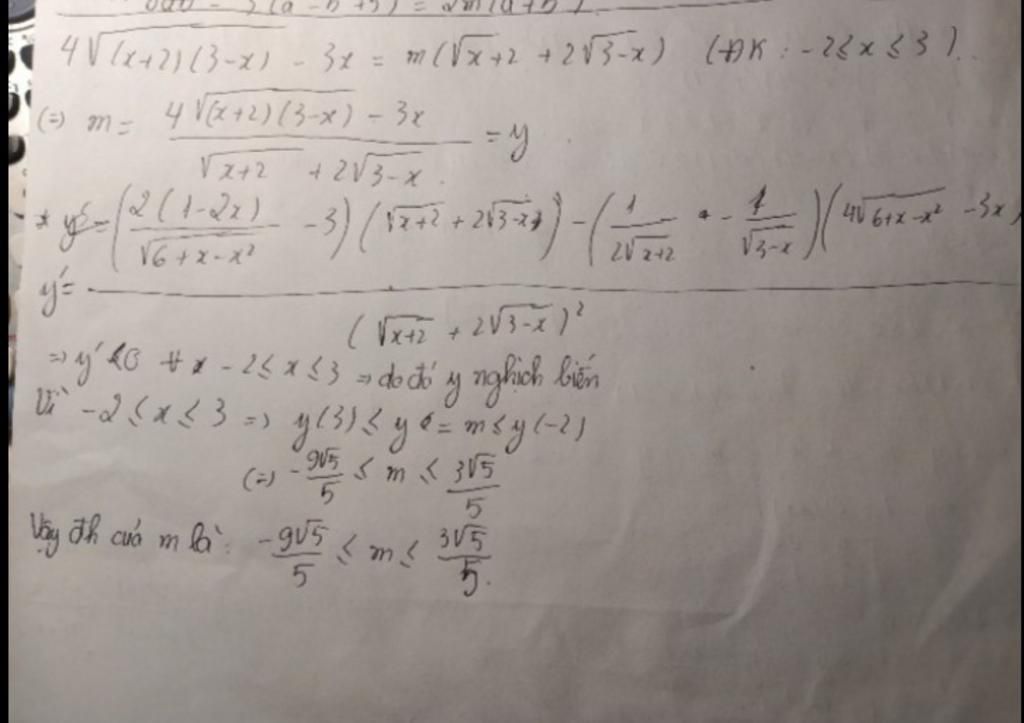 4√(x+2)(3-x) - 3x = m(√x+2 + 2√3-x) (ĐK : -2 ≤ x ≤ 3).
(=) m = 4√(x+2)(3-x) - 3x / √x+2 + 2√3-x = y
y' = (2(1-2x) / √6+x-x² - 3)(√x+2 + 2√3-x) - (1 / 2√x+2 - 1 / √3-x)(4√6+x-x² - 3x)
(√x+2 + 2√3-x)²
=> y' < 0 ∀ x -2 ≤ x ≤ 3 => do đó y nghịch biến
Vì -2 ≤ x ≤ 3 => y(3) ≤ y = m ≤ y(-2)
(=) -9√5/5 ≤ m ≤ 3√5/5
Vậy đk của m là: -9√5/5 ≤ m ≤ 3√5/5.